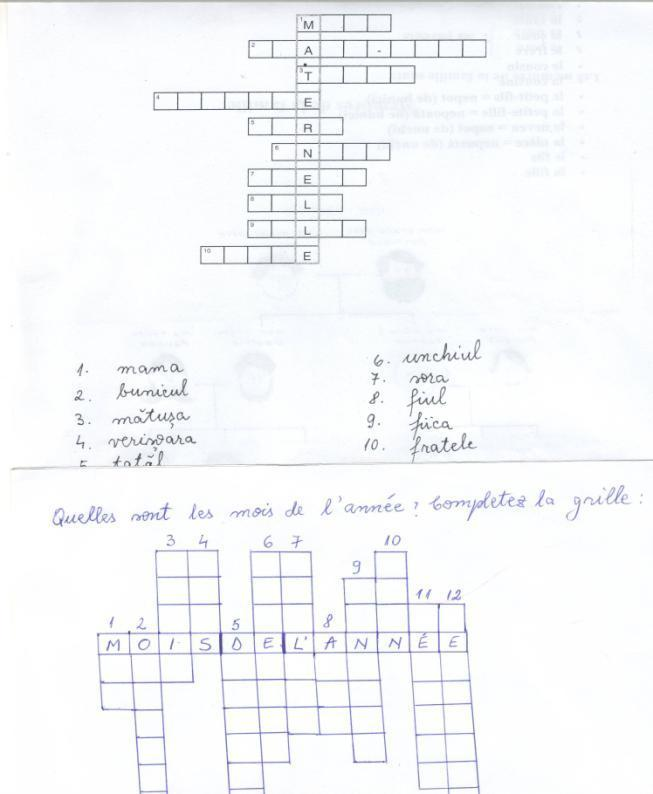 1 M
2 A -
3 T
4 E
5 R
6 N
7 E
8 L
9 L
10 E
1. mama
2. bunicul
3. mătușa
4. verișoara
5. tatăl
6. unchiul
7. sora
8. fiul
9. fiica
10. fratele
Quelles sont les mois de l'année? Completez la grille:
3 4 6 7 10
9
11 12
1 2 5 8
M O I S D E L' A N N É E